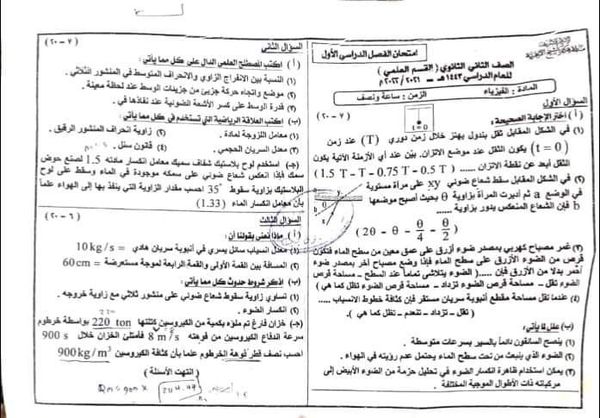 امتحان الفصل الدراسي الأول
الصف الثاني الثانوي ( القسم العلمي )
للعام الدراسي ١٤٤٣هـ -
المادة: الفيزياء الزمن: ساعة ونصف
السؤال الأول
(٧ - ٢٠)
(أ) اختر الإجابة الصحيحة:
t=0
١) في الشكل المقابل ثقل بندول يهتز خلال زمن دوري (T) عند زمن
(t = 0) يكون الثقل عند موضع الاتزان. بين عند أي الأزمنة الآتية يكون
الثقل أبعد عن نقطة الاتزان .... (1.5 T - T - 0.75 T - 0.5 T)
٢) في الشكل المقابل سقط شعاع ضوئي على مرآة مستوية xy
في الوضع a ثم أديرت المرآة بزاوية θ بحيث أصبح موضعها
b فإن الشعاع المنعكس يدور بزاوية..
(2θ - θ - θ/4 - θ/2)
٣) غمر مصباح كهربي بمصدر ضوء أزرق على عمق معين من سطح الماء فتكون
قرص من الضوء الأزرق على سطح الماء فإذا وضع مصباح آخر بمصدر ضوء
أحمر بدلا من الأزرق فإن ...... (الضوء يتلاشى تماماً عند السطح - مساحة قرص
الضوء تقل - مساحة قرص الضوء تزداد - مساحة قرص الضوء تظل كما هي )
٤) عندما تقل مساحة مقطع أنبوبة سريان مستقر فإن كثافة خطوط الانسياب .....
(تقل - تزداد - تنعدم - تظل كما هي ).
(ب) علل لما يأتي:
١) ينصح السائقون دائماً بالسير بسرعات متوسطة .
٢) الضوء الذي ينبعث من تحت سطح الماء يحتمل عدم رؤيته في الهواء .
٣) يمكن استخدام ظاهرة انكسار الضوء في تحليل حزمة من الضوء الأبيض إلى
مركباته ذات الأطوال الموجية المختلفة .
السؤال الثاني
(٧ - ٢٠)
(أ) اكتب المصطلح العلمي الدال على كل مما يأتي:
١) النسبة بين الانفراج الزاوي والانحراف المتوسط في المنشور الثلاثي.
٢) موضع واتجاه حركة جزيئ من جزيئات الوسط عند لحظة معينة.
٣) قدرة الوسط على كسر الأشعة الضوئية عند نفاذها في .
(ب) اكتب العلاقة الرياضية التي تستخدم في كل مما يأتي:
١) معامل اللزوجة لمادة . ٢) زاوية انحراف المنشور الرقيق .
٣) معدل السريان الحجمي . ٤) قانون سنل .
(جـ) استخدم لوح بلاستيك شفاف سميك معامل انكسار مادته 1.5 لصنع حوض
سمك فإذا انعكس شعاع ضوئي على سمكه موجودة في الماء وسقط على لوح
البلاستيك بزاوية سقوط 35° احسب مقدار الزاوية التي ينفذ بها إلى الهواء علماً
بأن معامل انكسار الماء (1.33)
السؤال الثالث
(٦ - ٢٠)
(أ) ماذا نعني بقولنا أن:
١) معدل انسياب سائل يسري في أنبوبة سريان هادئ = 10 kg/s
٢) المسافة بين القمة الأولى والقمة الرابعة لموجة مستعرضة = 60cm
(ب) اذكر شروط حدوث كل مما يأتي:
١) تساوي زاوية سقوط شعاع ضوئي على منشور ثلاثي مع زاوية خروجه .
٢) انكسار الضوء .
(جـ) خزان فارغ تم ملؤه بكمية من الكيروسين كتلتها 220 ton بواسطة خرطوم
سرعة الدفاع الكيروسين من فوهته 8 m/s فأمتلئ الخزان خلال 900 s
احسب نصف قطر فوهة الخرطوم علماً بأن كثافة الكيروسين 900 kg/m³
( انتهت الأسئلة )